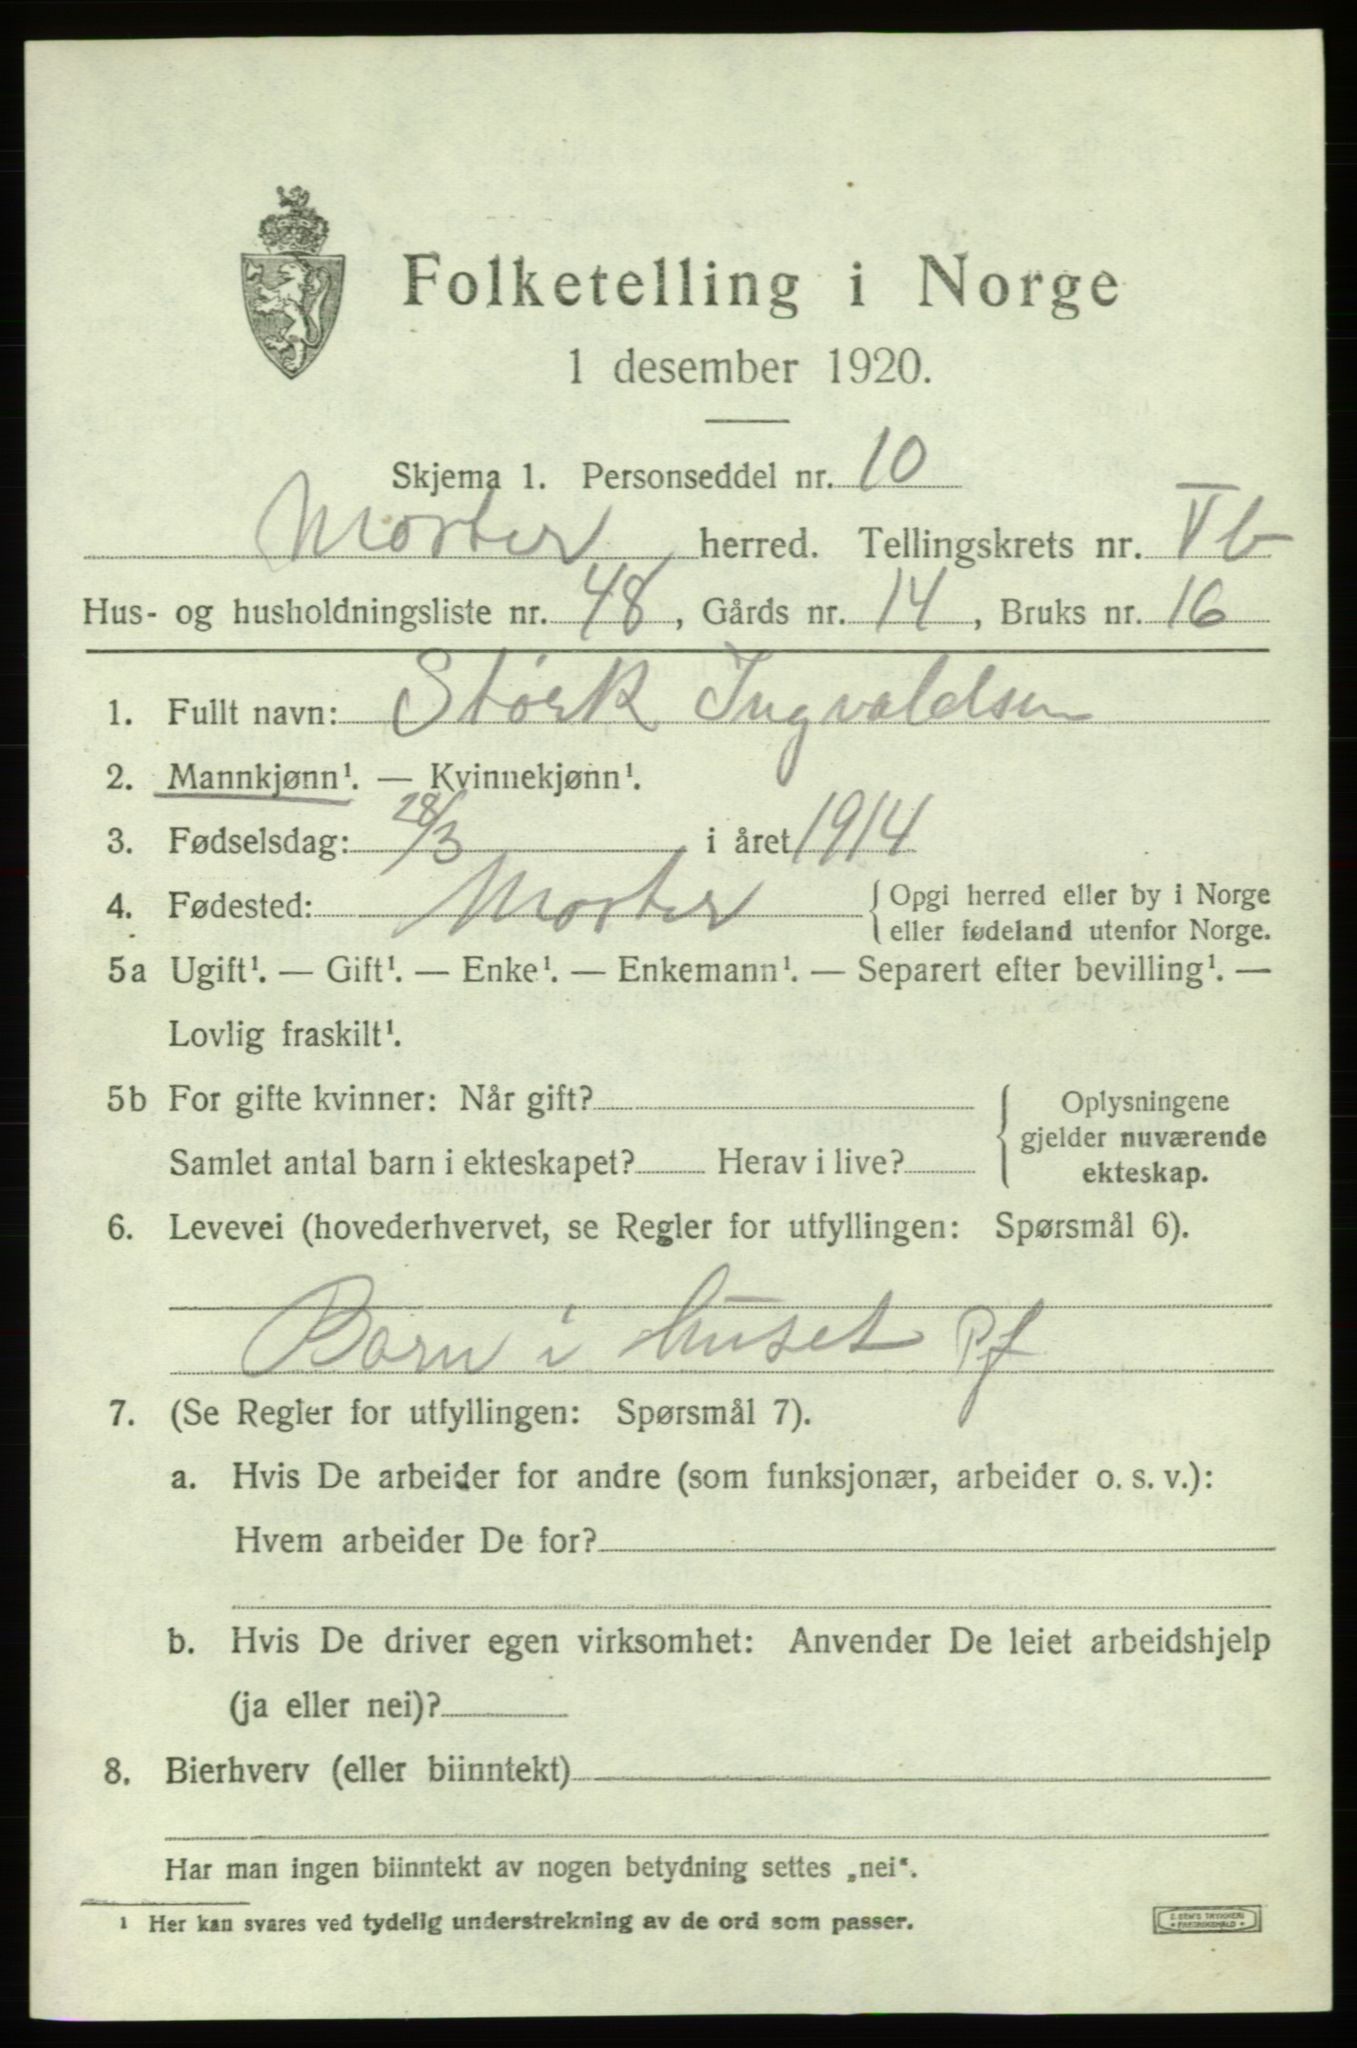 Folketelling i Norge
1 desember 1920.
Skjema 1. Personseddel nr. 10
Moster herred. Tellingskrets nr. Vb
Hus- og husholdningsliste nr. 48, Gårds nr. 14, Bruks nr. 16
1. Fullt navn: Størk Ingvaldsen
2. Mannkjønn¹. — Kvinnekjønn¹.
3. Fødselsdag: 28/3 i året 1914
4. Fødested: Moster { Opgi herred eller by i Norge
eller fødeland utenfor Norge.
5a Ugift¹. — Gift¹. — Enke¹. — Enkemann¹. — Separert efter bevilling¹. —
Lovlig fraskilt¹.
5b For gifte kvinner: Når gift?
Samlet antal barn i ekteskapet? Herav i live?
{ Oplysningene
gjelder nuværende
ekteskap.
6. Levevei (hovederhvervet, se Regler for utfyllingen: Spørsmål 6).
Barn i huset Pf
7. (Se Regler for utfyllingen: Spørsmål 7).
a. Hvis De arbeider for andre (som funksjonær, arbeider o. s. v.):
Hvem arbeider De for?
b. Hvis De driver egen virksomhet: Anvender De leiet arbeidshjelp
(ja eller nei)?
8. Bierhverv (eller biinntekt)
Har man ingen biinntekt av nogen betydning settes „nei“.
¹ Her kan svares ved tydelig understrekning av de ord som passer.